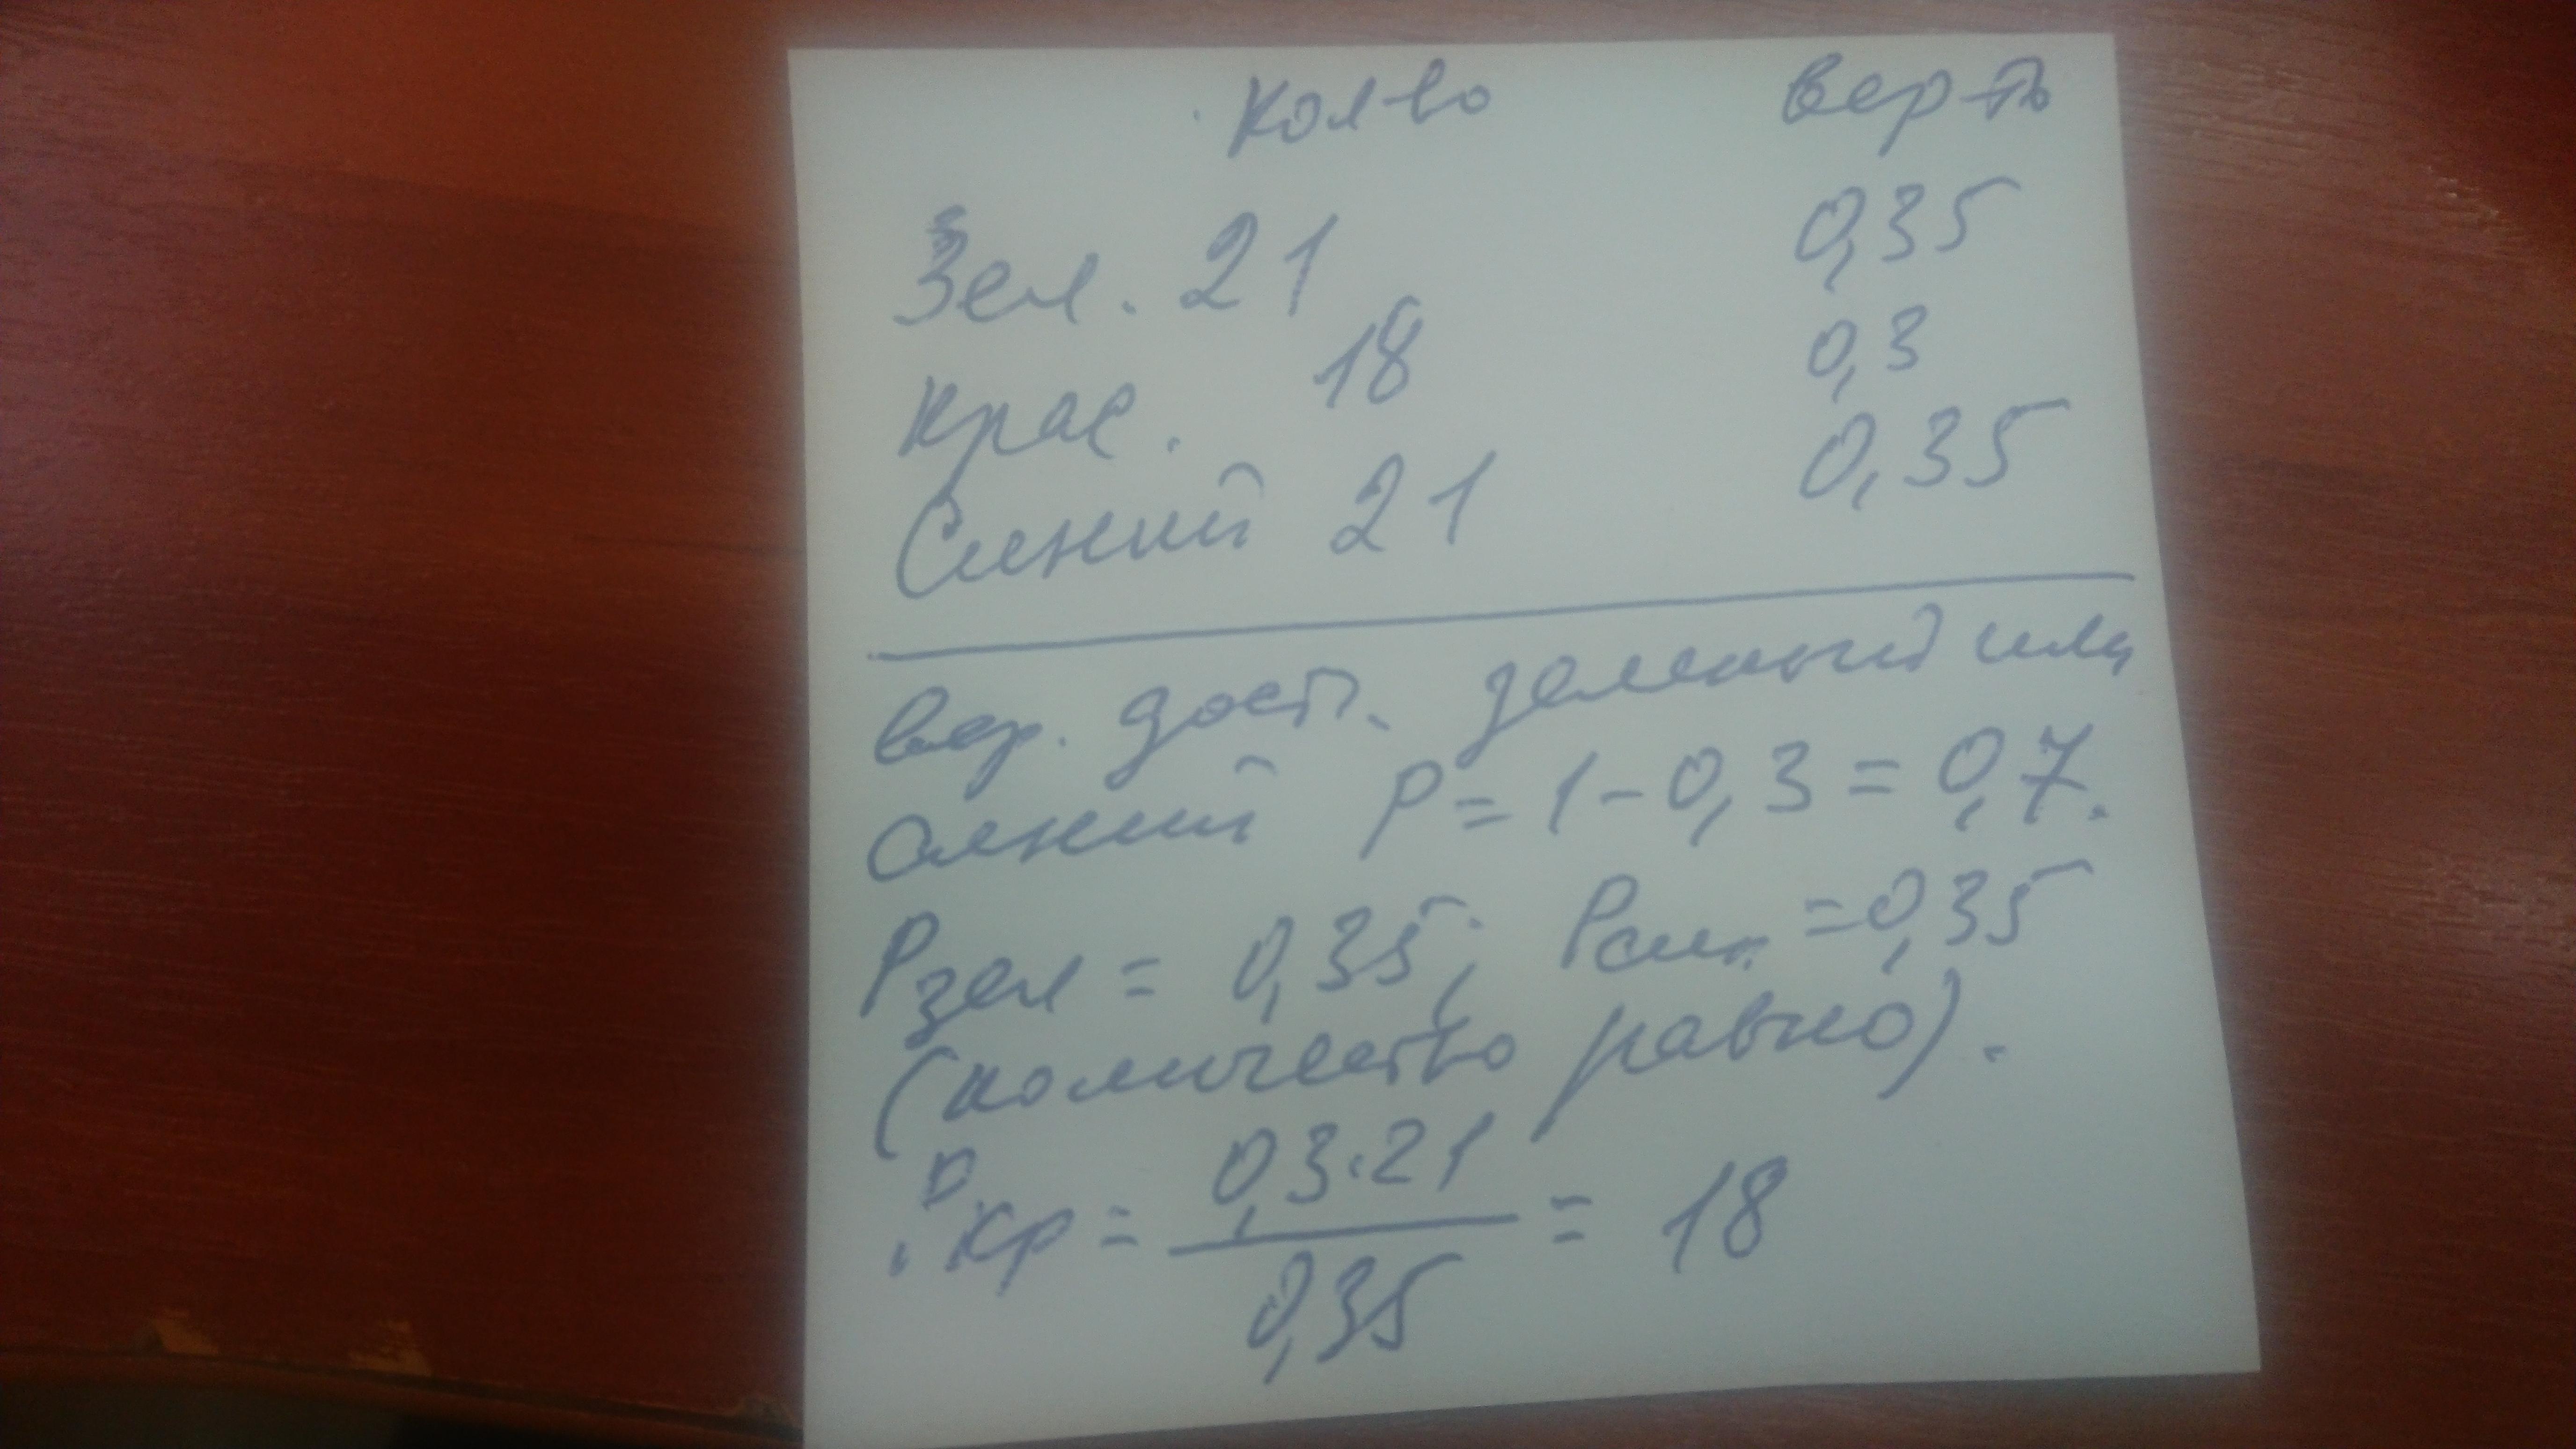 Кол-во вер-ть
Зел. 21 0,35
Крас. 18 0,3
Синий 21 0,35
вер. дост. зеленый или
синий P = 1 - 0,3 = 0,7.
Pзел = 0,35; Pсин. = 0,35
(количество равно).
Pкр = 0,3·21
/ 0,35 = 18